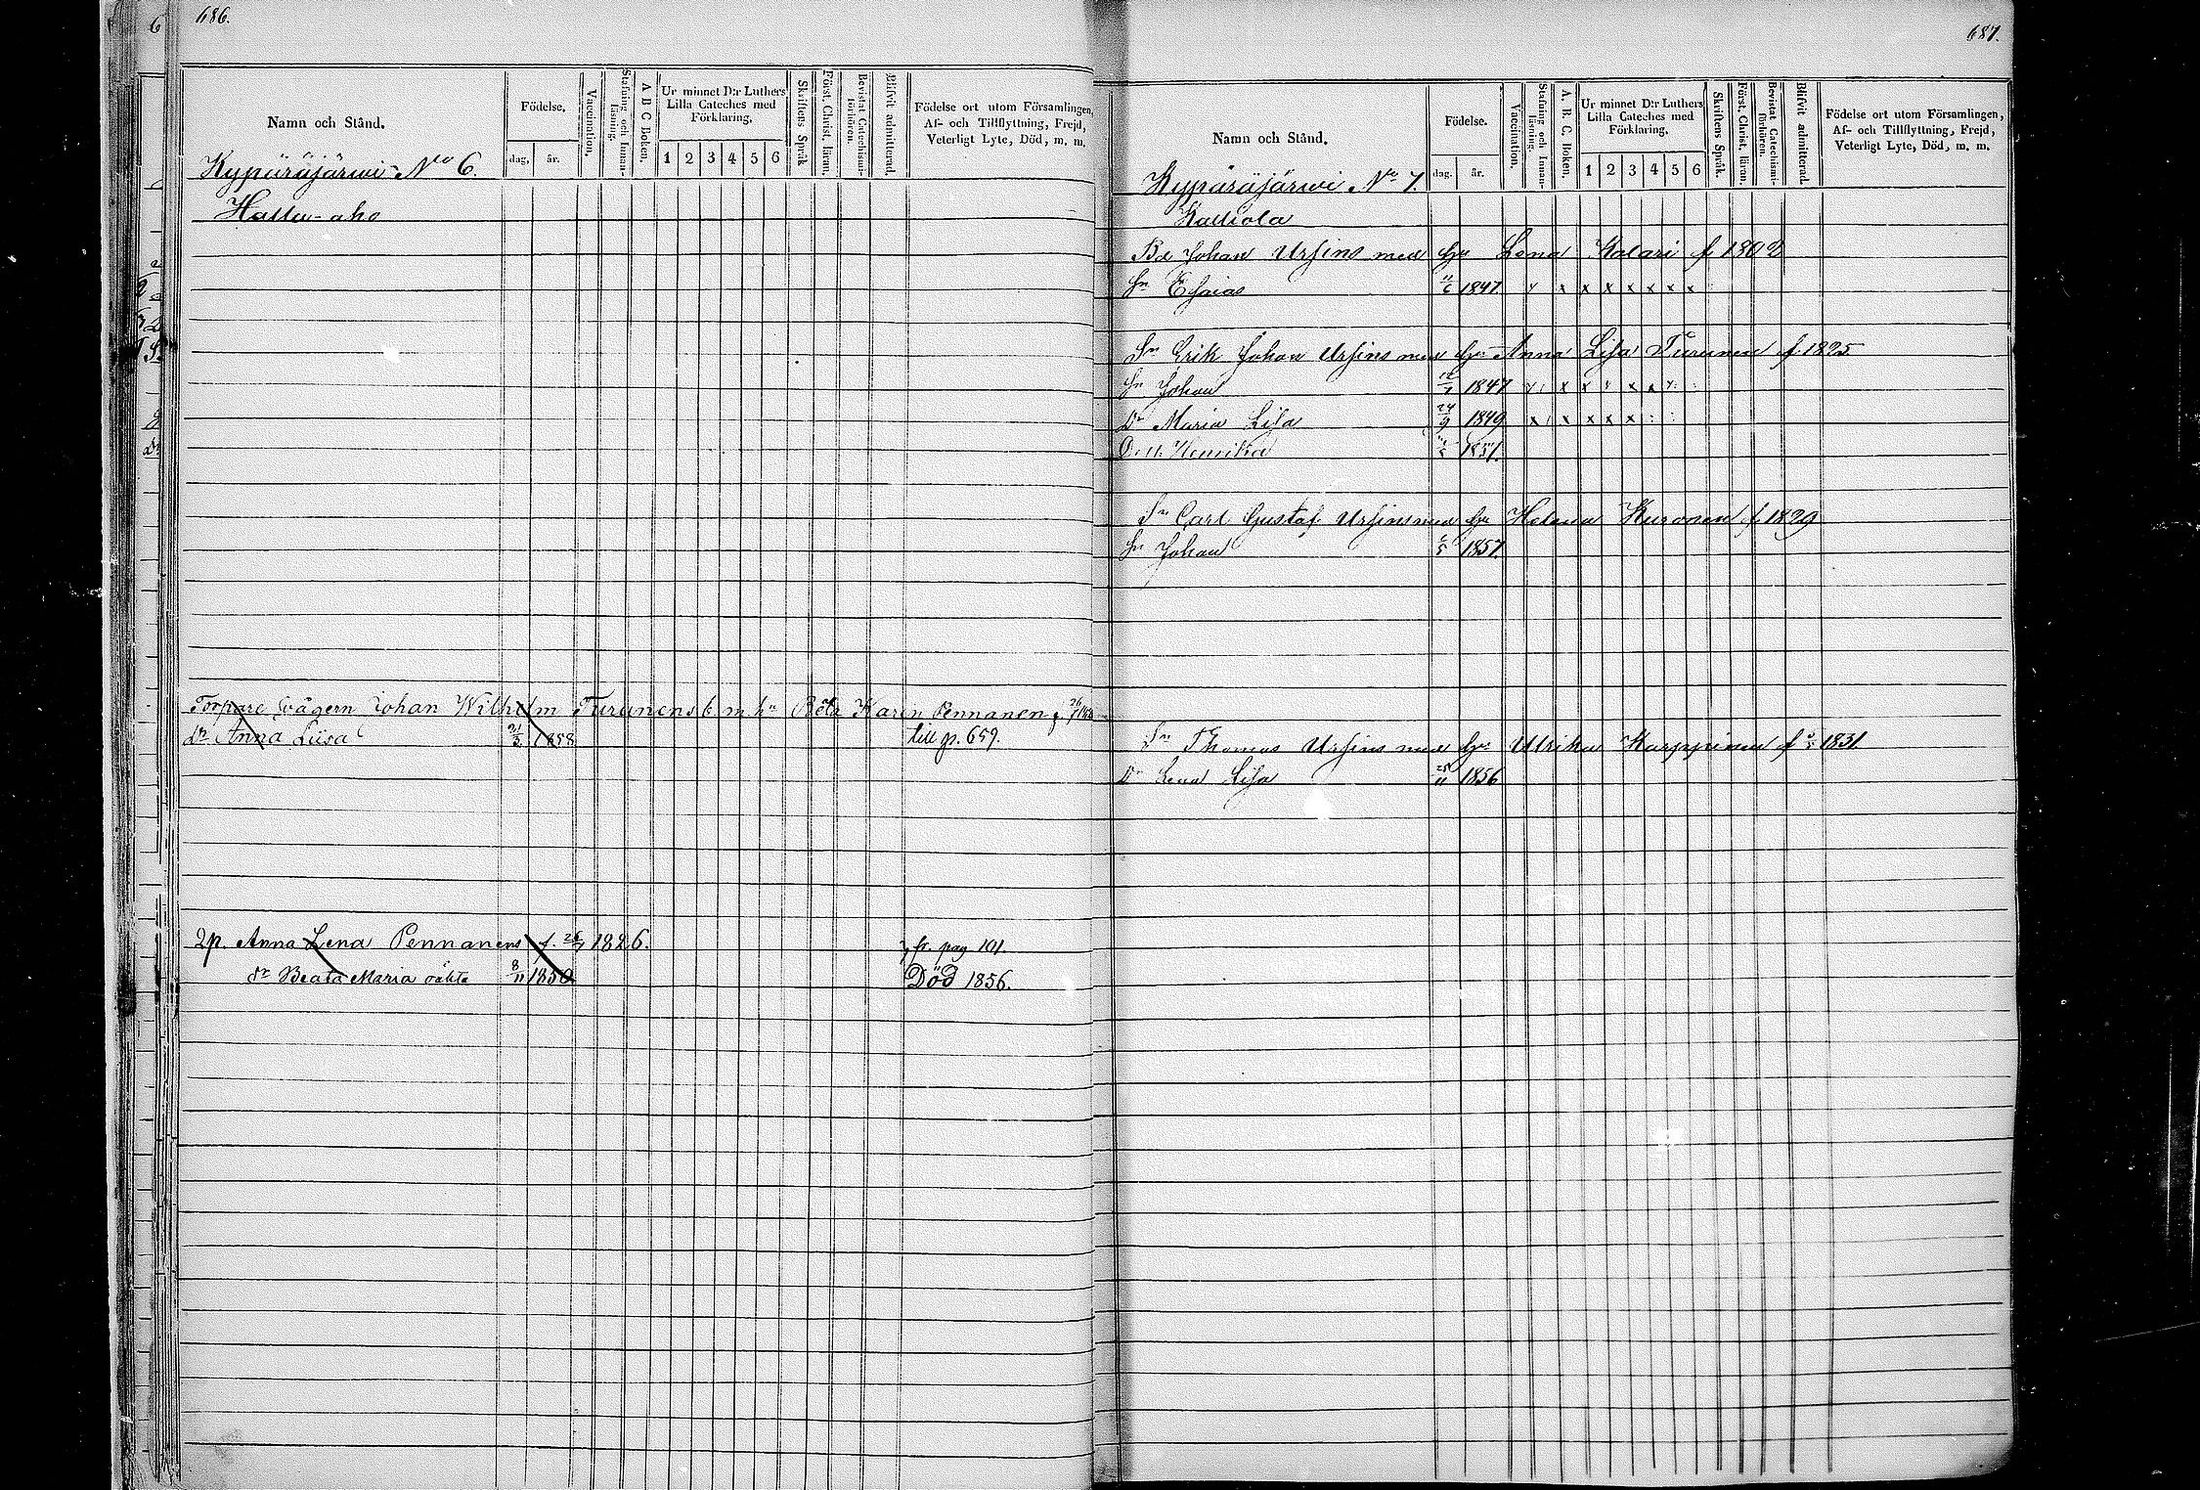 686.
Namn och Stånd.
Födelse.
dag, år.
Vaccination.
Stafning och Innan-läsning.
A B C Boken.
Ur minnet D:r Luthers Lilla Cateches med Förklaring.
1 2 3 4 5 6
Skriftens Språk
Först. Christ. läran.
Bevistat Catechismi-förhören.
Blifvit admitterad.
Födelse ort utom Församlingen,
Af- och Tillflyttning, Frejd,
Veterligt Lyte, Död, m. m.
Kypäräjärwi No 6.
Halla-aho
Torpare vågern Johan Wilhelm Turunens b m hu Beta Karin Pennanen f.
dr Anna Liisa 21/3 1858 till p. 659.
Ip. Anna Lena Pennanens f. 26/7 1826. fr. pag 101.
dr Beata Maria oäkta 8/11 1850 Död 1856.
687.
Namn och Stånd.
Födelse.
dag. år.
Vaccination.
Stafning och Innan-läsning.
A. B. C. Boken.
Ur minnet D:r Luthers Lilla Cateches med Förklaring.
1 2 3 4 5 6
Skriftens Språk.
Först. Christ. läran.
Bevistat Catechismi-förhören.
Blifvit admitterad.
Födelse ort utom Församlingen,
Af- och Tillflyttning, Frejd,
Veterligt Lyte, Död, m. m.
Kypäräjärwi No 7.
Kalliola
Bd Johan Ursins med hu Lena Kolari f 1802
Sn Esaias 1847 x x x x x x x x
Sn Erik Johan Ursins med hu Anna Lisa Turunen f. 1825
Sn Johan 1847 x x x x x x x
Dr Maria Lisa 24/9 1849 x x x x x
Henrika 1851.
Sn Carl Gustaf Ursins med hu Helena Kuronen f. 1829
Sn Johan 1857.
Sn Thomas Ursins med hu Ulrika Karppinen f 1831
Dr Lena Lisa 25/11 1856